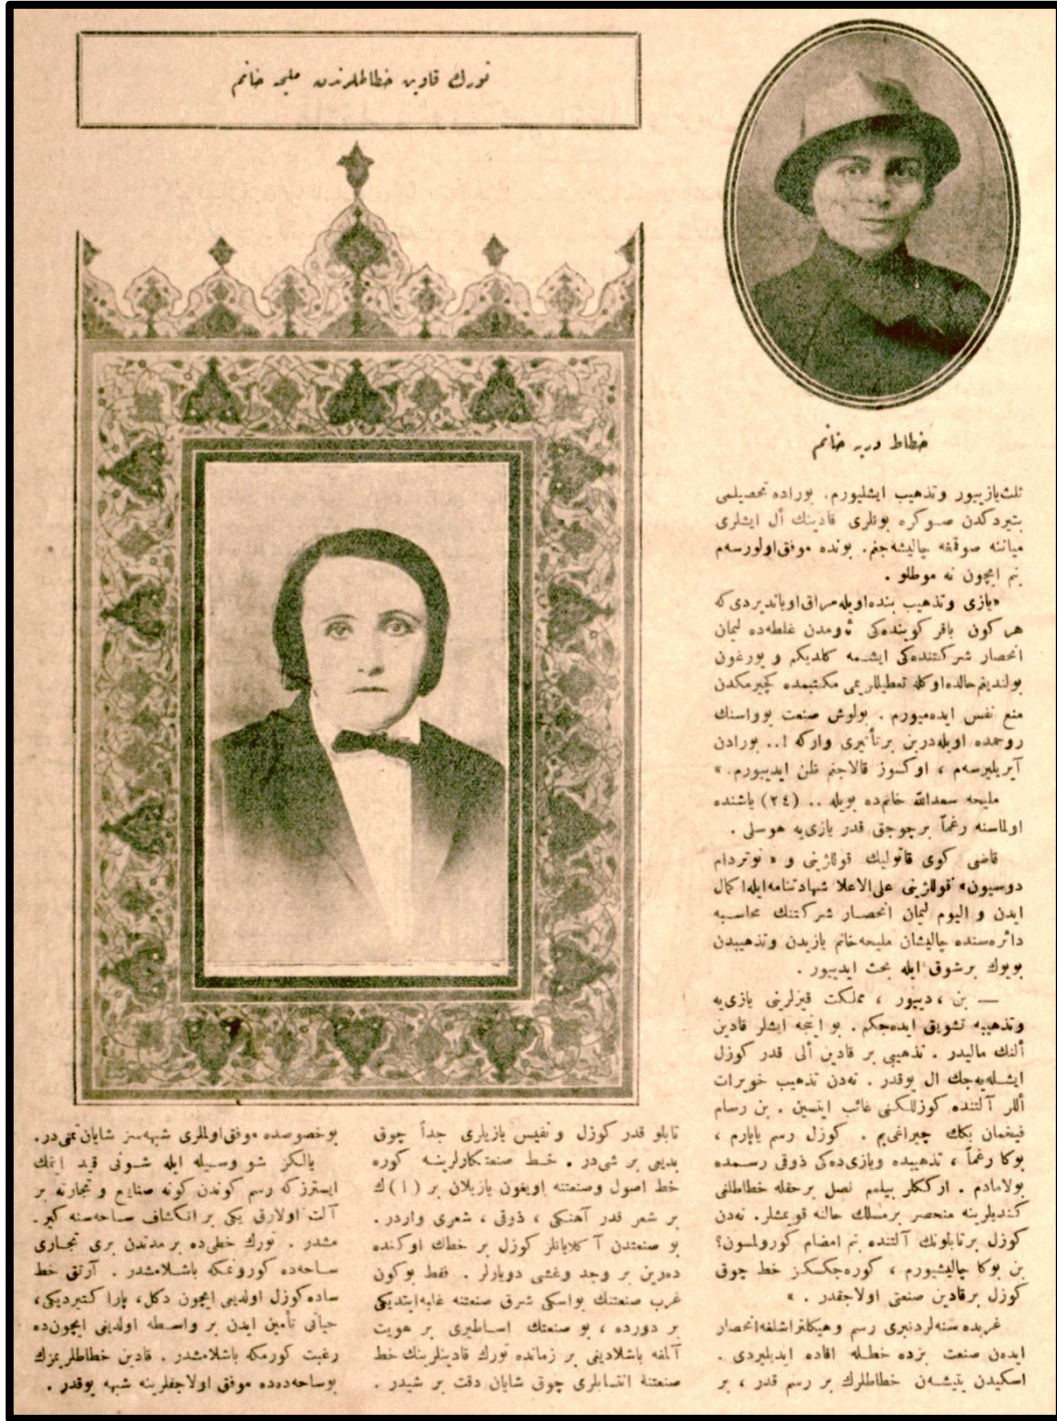 تورك قادین خطاطلرندن ملیحه خانم
خطاط دریه خانم
ثلث یازییور وتذهیب ایشلیورم. بوراده تحصیلمی
بتیردكدن صوكره بونلری قادینك أل ایشلری
میاننه صوقغه چالیشه‌جغم. بونده موفق اولورسه‌م
بنم ایچون نه موطلو .
«یازی وتذهیب بنده اویله مراق اویاندیردی كه
هر كون باقر كوینده‌كی ئه‌ومدن غلطه‌ده لیمان
انحصار شركتنده‌كی ایشمه كلدیكم و یورغون
بولندیغم حالده اوكله تعطیللریمی مكتبمده كچیرمكدن
منع نفس ایده‌میورم . بو لوش صنعت یوواسنك
روحمده اویله درین برتأثیری وار كه !.. بورادن
آیریلیرسه‌م ، اوكسوز قالاجغم ظن ایدییورم. »
ملیحه سعدالله خانم‌ده بویله .. (٢٤) یاشنده
اولماسنه رغماً برچوجق قدر یازی‌یه هوسلی .
قاضی كوی قاتولیك قوللژینی و « نوتردام
دوسیون» قوللژینی علی‌الاعلا شهادتنامه ایله اكمال
ایدن و الیوم لیمان انحصار شركتنك محاسبه
دائره‌سنده چالیشان ملیحه خانم یازیدن وتذهیبدن
بویوك برشوق ایله بحث ایدییور .
— بن ، دییور ، مملكت قیزلرینی یازی‌یه
وتذهیبه تشویق ایده‌جكم . بو اینجه ایشلر قادین
ألنك مالیدر . تذهیبی بر قادین ألی قدر كوزل
ایشله‌یه‌جك ال یوقدر . نه‌دن تذهیب خویرات
أللر آلتنده كوزللكنی غائب ایتسین . بن رسام
فیغمان بكك چیراغی‌یم . كوزل رسم یاپارم ،
بوكا رغماً ، تذهیبده ویازی‌ده‌كی ذوقی رسمده
بولامادم . ارككلر بیلمم نصل برحقله خطاطلغی
كندیلرینه منحصر برمسلك حالنه قویمشلر. نه‌دن
كوزل برتابلونك آلتنده بنم امضام كورولمسون؟
بن بوكا چالیشیورم ، كوره‌جكسكز خط چوق
كوزل برقادین صنعتی اولاجقدر . »
غربده سنه‌لردنبری رسم وهیكلتراشلغه انحصار
ایده‌ن صنعت بزده خطله افاده ایدیلیردی .
اسكیدن یتیشه‌ن خطاطلرك بر رسم قدر ، بر
تابلو قدر كوزل ونفیس یازیلری جداً چوق
بدیعی بر شی‌در . خط صنعتكارلرینه كوره
خط اصول وصنعتنه اویغون یازیلان بر (ا) ك
بر شعر قدر آهنكی ، ذوقی ، شعری واردر.
بو صنعتدن آكلایانلر كوزل بر خطك اوكنده
ده‌رین بر وجد وغشی دویارلر . فقط بوكون
غرب صنعتنك بواسكی شرق صنعتنه غلبه ایتدیكی
بر دورده ، بو صنعتك اساطیری بر هویت
آلمغه باشلادیغی بر زمانده تورك قادینلرینك خط
صنعتنه انتسابلری چوق شایان دقت بر شیدر .
بوخصوصده موفق اولملری شبهه‌سز شایان تمنی‌در.
یالكز شو وسیله ایله شونی قید ایتمك
ایسترز كه رسم كوندن كونه صنایع و تجارته بر
آلت اولارق یكی بر انكشاف ساحه‌سنه كیر-
مشدر . تورك خطی‌ده بر مدتدن بری تجاری
ساحه‌ده كورونمكه باشلامشدر . آرتق خط
ساده كوزل اولدیغی ایچون دكل، پارا كتیردیكی،
حیاتی تأمین ایدن بر واسطه اولدیغی ایچون‌ده
رغبت كورمكه باشلامشدر . قادین خطاطلریمزك
بوساحه‌ده‌ده موفق اولاجقلرینه شبهه یوقدر .